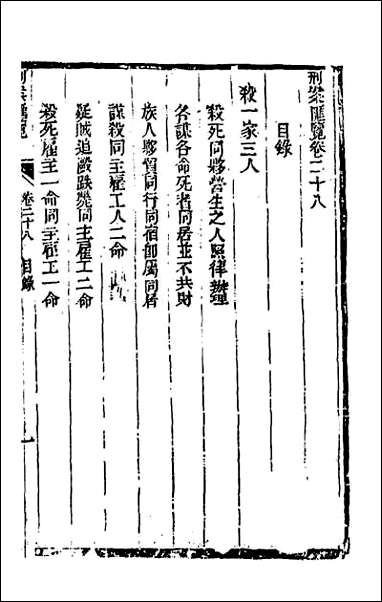 刑案匯覽卷二十八
目錄
殺一家三人
殺死同夥營生之人照律辦理
各謀各命死者同居並不共財
族人夥買同行同宿卽屬同居
謀殺同主雇工人二命
疑賊追毆跌斃同主雇工二命
殺死雇主一命同主雇工一命
刑案匯覽 卷二十八 目錄